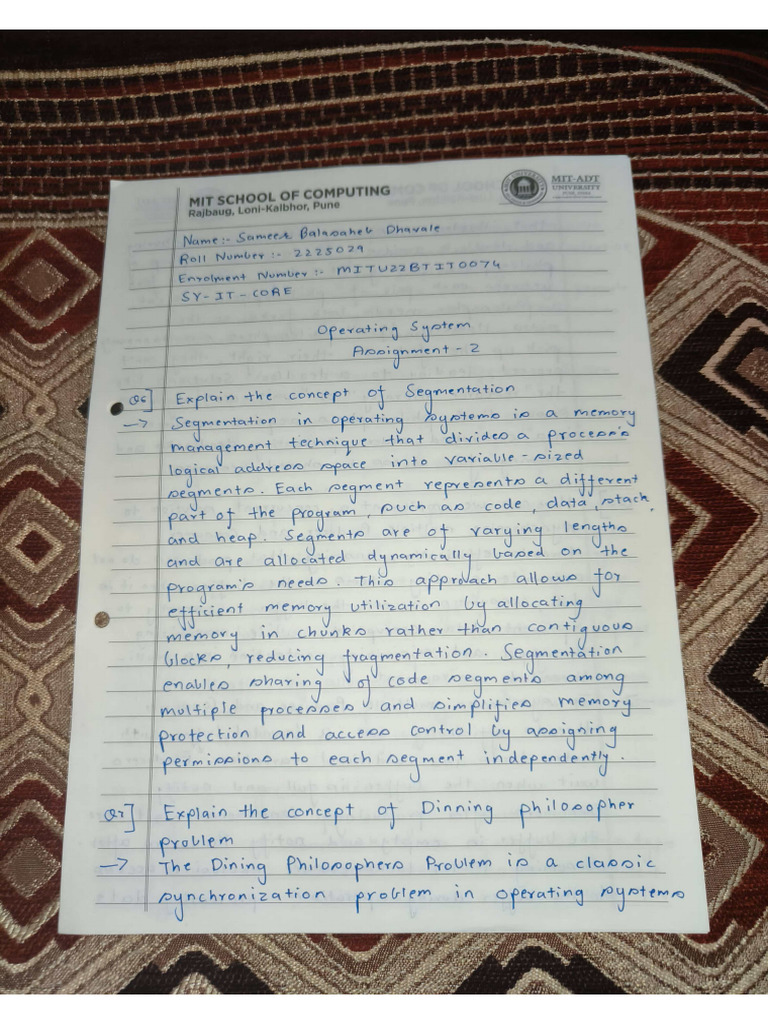 MIT SCHOOL OF COMPUTING
Rajbaug, Loni-Kalbhor, Pune
MIT-ADT
UNIVERSITY
Name:- Sameer Balasaheb Dhavale
Roll Number:- 2225029
Enrolment Number:- MITU22BTIT0074
SY-IT-CORE
Operating System
Assignment - 2
Q6] Explain the concept of Segmentation
→ Segmentation in operating systems is a memory
management technique that divides a process's
logical address space into variable-sized
segments. Each segment represents a different
part of the program, such as code, data, stack,
and heap. Segments are of varying lengths
and are allocated dynamically based on the
program's needs. This approach allows for
efficient memory utilization by allocating
memory in chunks rather than contiguous
blocks, reducing fragmentation. Segmentation
enables sharing of code segments among
multiple processes and simplifies memory
protection and access control by assigning
permissions to each segment independently.
Q7] Explain the concept of Dinning philosopher
problem
→ The Dining Philosophers Problem is a classic
synchronization problem in operating systems